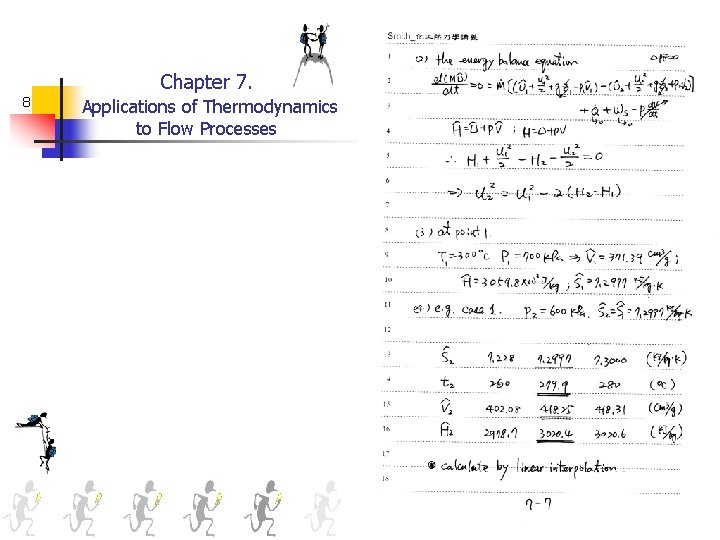 8
Chapter 7.
Applications of Thermodynamics
to Flow Processes
Smith_化工熱力學講義
1 (2) the energy balance equation
2 d(MÛ)/dt = 0 = ṁ[(Û₁ + u₁²/2 + gz₁ + p₁V̂₁) - (Û₂ + u₂²/2 +
3 + Q̇ + Ẇs - p
4 Ĥ = Û + pV̂ ; Ĥ = Û + pV̂
5 ∴ H₁ + u₁²/2 - H₂ - u₂²/2 = 0
6 => u₂² = u₁² - 2(H₂ - H₁)
7
8 (3) at point 1.
9 T₁ = 300°C P₁ = 700 kPa → V̂₁ = 371.39 cm³/g ;
10 Ĥ = 3059.8×10³ J/kg ; Ŝ₁ = 7.2997 kJ/kg·K
11 e.g. case 1. P₂ = 600 kPa, Ŝ₂ = Ŝ₁ = 7.2997 kJ/kg·K
12
13 Ŝ₂ 7.228 7.2997 7.3000 (kJ/kg·K)
4 t₂ 260 279.9 280 (°C)
15 V̂₂ 402.08 418.25 418.31 (cm³/g)
16 Ĥ₂ 2978.7 3020.4 3020.6 (kJ/kg)
17 calculate by linear interpolation
18
7-7